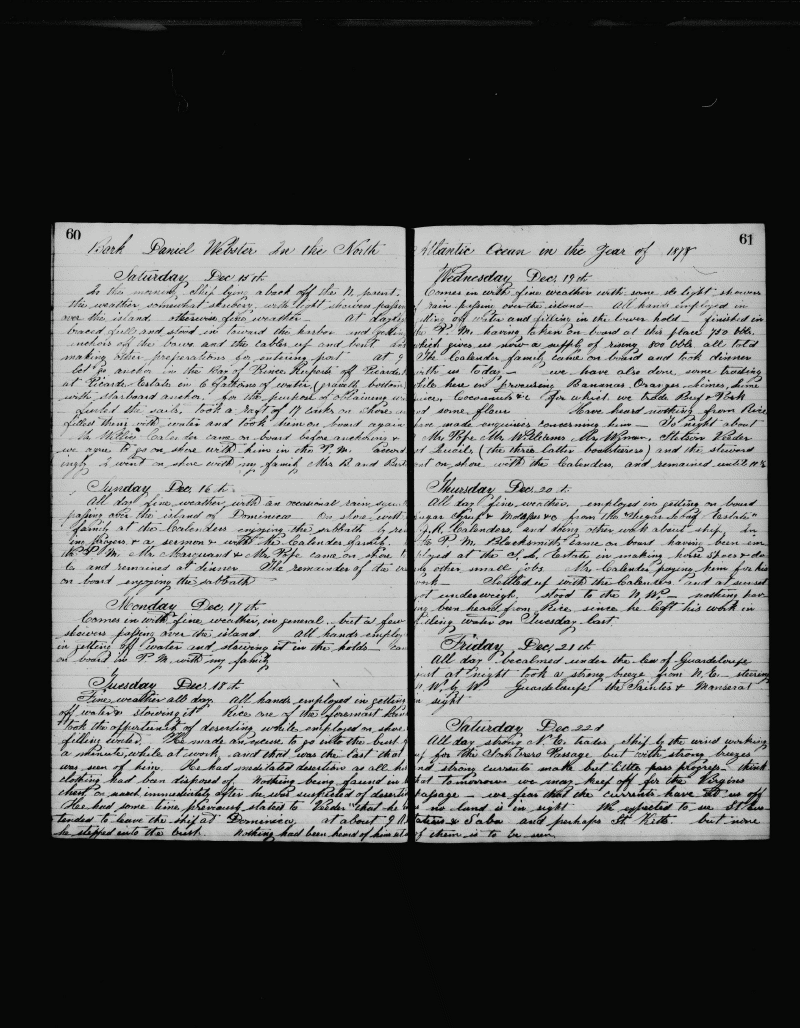 60
Bark Daniel Webster In the North
Saturday Dec 15th
In the morning Ship lying aback off the N. point.
the weather somewhat showery, with light showers passing
over the island otherwise fine weather at daylight
braced full and stood in toward the harbor and getting
anchors off the bows and the cables up and bent
making other preparations for entering port at 9
let go anchor in the Bay of Prince Ruperts off Picards
at Picards Estate in 6 fathoms of water
with starboard anchor. for the purpose of obtaining
furled the sails. took a raft of 17 casks on shore
filled them with water and took them on board again
Mr Willie Calender came on board before anchoring &
we agree to go on shore with him in the P. M.
I went on shore with my family Mrs B. and
Sunday Dec. 16th
All day fine weather with an occasional rain
passing over the island of Dominica On shore with
family at the Calenders enjoying the sabbath
in prayers & a sermon with the Calender family
P M. Mr Marquant & Mr Pope came on shore
and remained at dinner The remainder of the
on board enjoying the sabbath
Monday Dec 17th
Comes in with fine weather, in general, but a few
showers passing over the island All hands
in getting off water and stowing it in the holds
on board in P. M. with my family
Tuesday Dec 18th
Fine weather all day. All hands employed in getting
off water & stowing it Rice one of the foremast
took the oppertunity of deserting while employed on shore
filling water. He made an excuse to go into the bush
a minute, while at work, and that was the last that
was seen of him. He had meditated desertion as all his
clothing had been disposed of Nothing being found in
chest on search immediately after he was suspected of
He had some time previously stated to Veder "that he
tended to leave the ship at Dominica at about 9
he stepped into the bush. Nothing had been heard of him at
61
Atlantic Ocean in the Year of 1878
Wednesday Dec. 19th
Comes in with fine weather with some light showers
rain passing over the island— All hands employed in
off water and filling in the lower hold— finished in
P. M. having taken on board at this place 750 bbls.
which gives us now a supply of rising 800 bbls all told
The Calender family came on board and took dinner
with us today,— we have also done some trading
while here in procuring Bananas. Oranges. Limes, lime
Cocoanuts &c for which we trade Beef & Pork
some flour Have heard nothing from Rice
made enquiries concerning him— To night about
Mr. Pope Mr Williams Mr. Wyman, Stetson Veder
(the three latter boatsteerers) and the steward
on shore with the Calenders, and remained until
Thursday Dec 20th
All day fine weather. employed in getting on board
Molasses &c from the "Sugar Loaf Estate"
Calenders, and doing other work about ship. In
P. M. Blacksmith came on board having been
at the Estate in making horse shoes &
other small jobs Mr. Calender paying him for his
work— Settled up with the Calenders and at sunset
got underweigh. stood to the N. W.— nothing
been heard from Rice, since he left his work in
water on Tuesday last.
Friday Dec. 21th
All day becalmed under the lee of Guardeloupe
just at night took a strong breeze from N. E. steering
W. by W. Guardeloupe the Saintes & Monserat
in sight
Saturday Dec 22d
All day strong N. E. trades Ship by the wind working
for the Sombrero Passage but with strong breezes
and strong currents make but little progress— think
that tomorrow we may keep off for the Virgins
passage— we fear that the currents have set us off
no land is in sight We expected to see St
& Saba and perhaps St. Kitts. but none
of them is to be seen